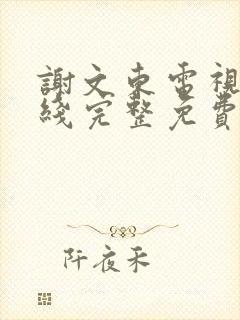 謝文東電視
綫完整免費
阡夜禾